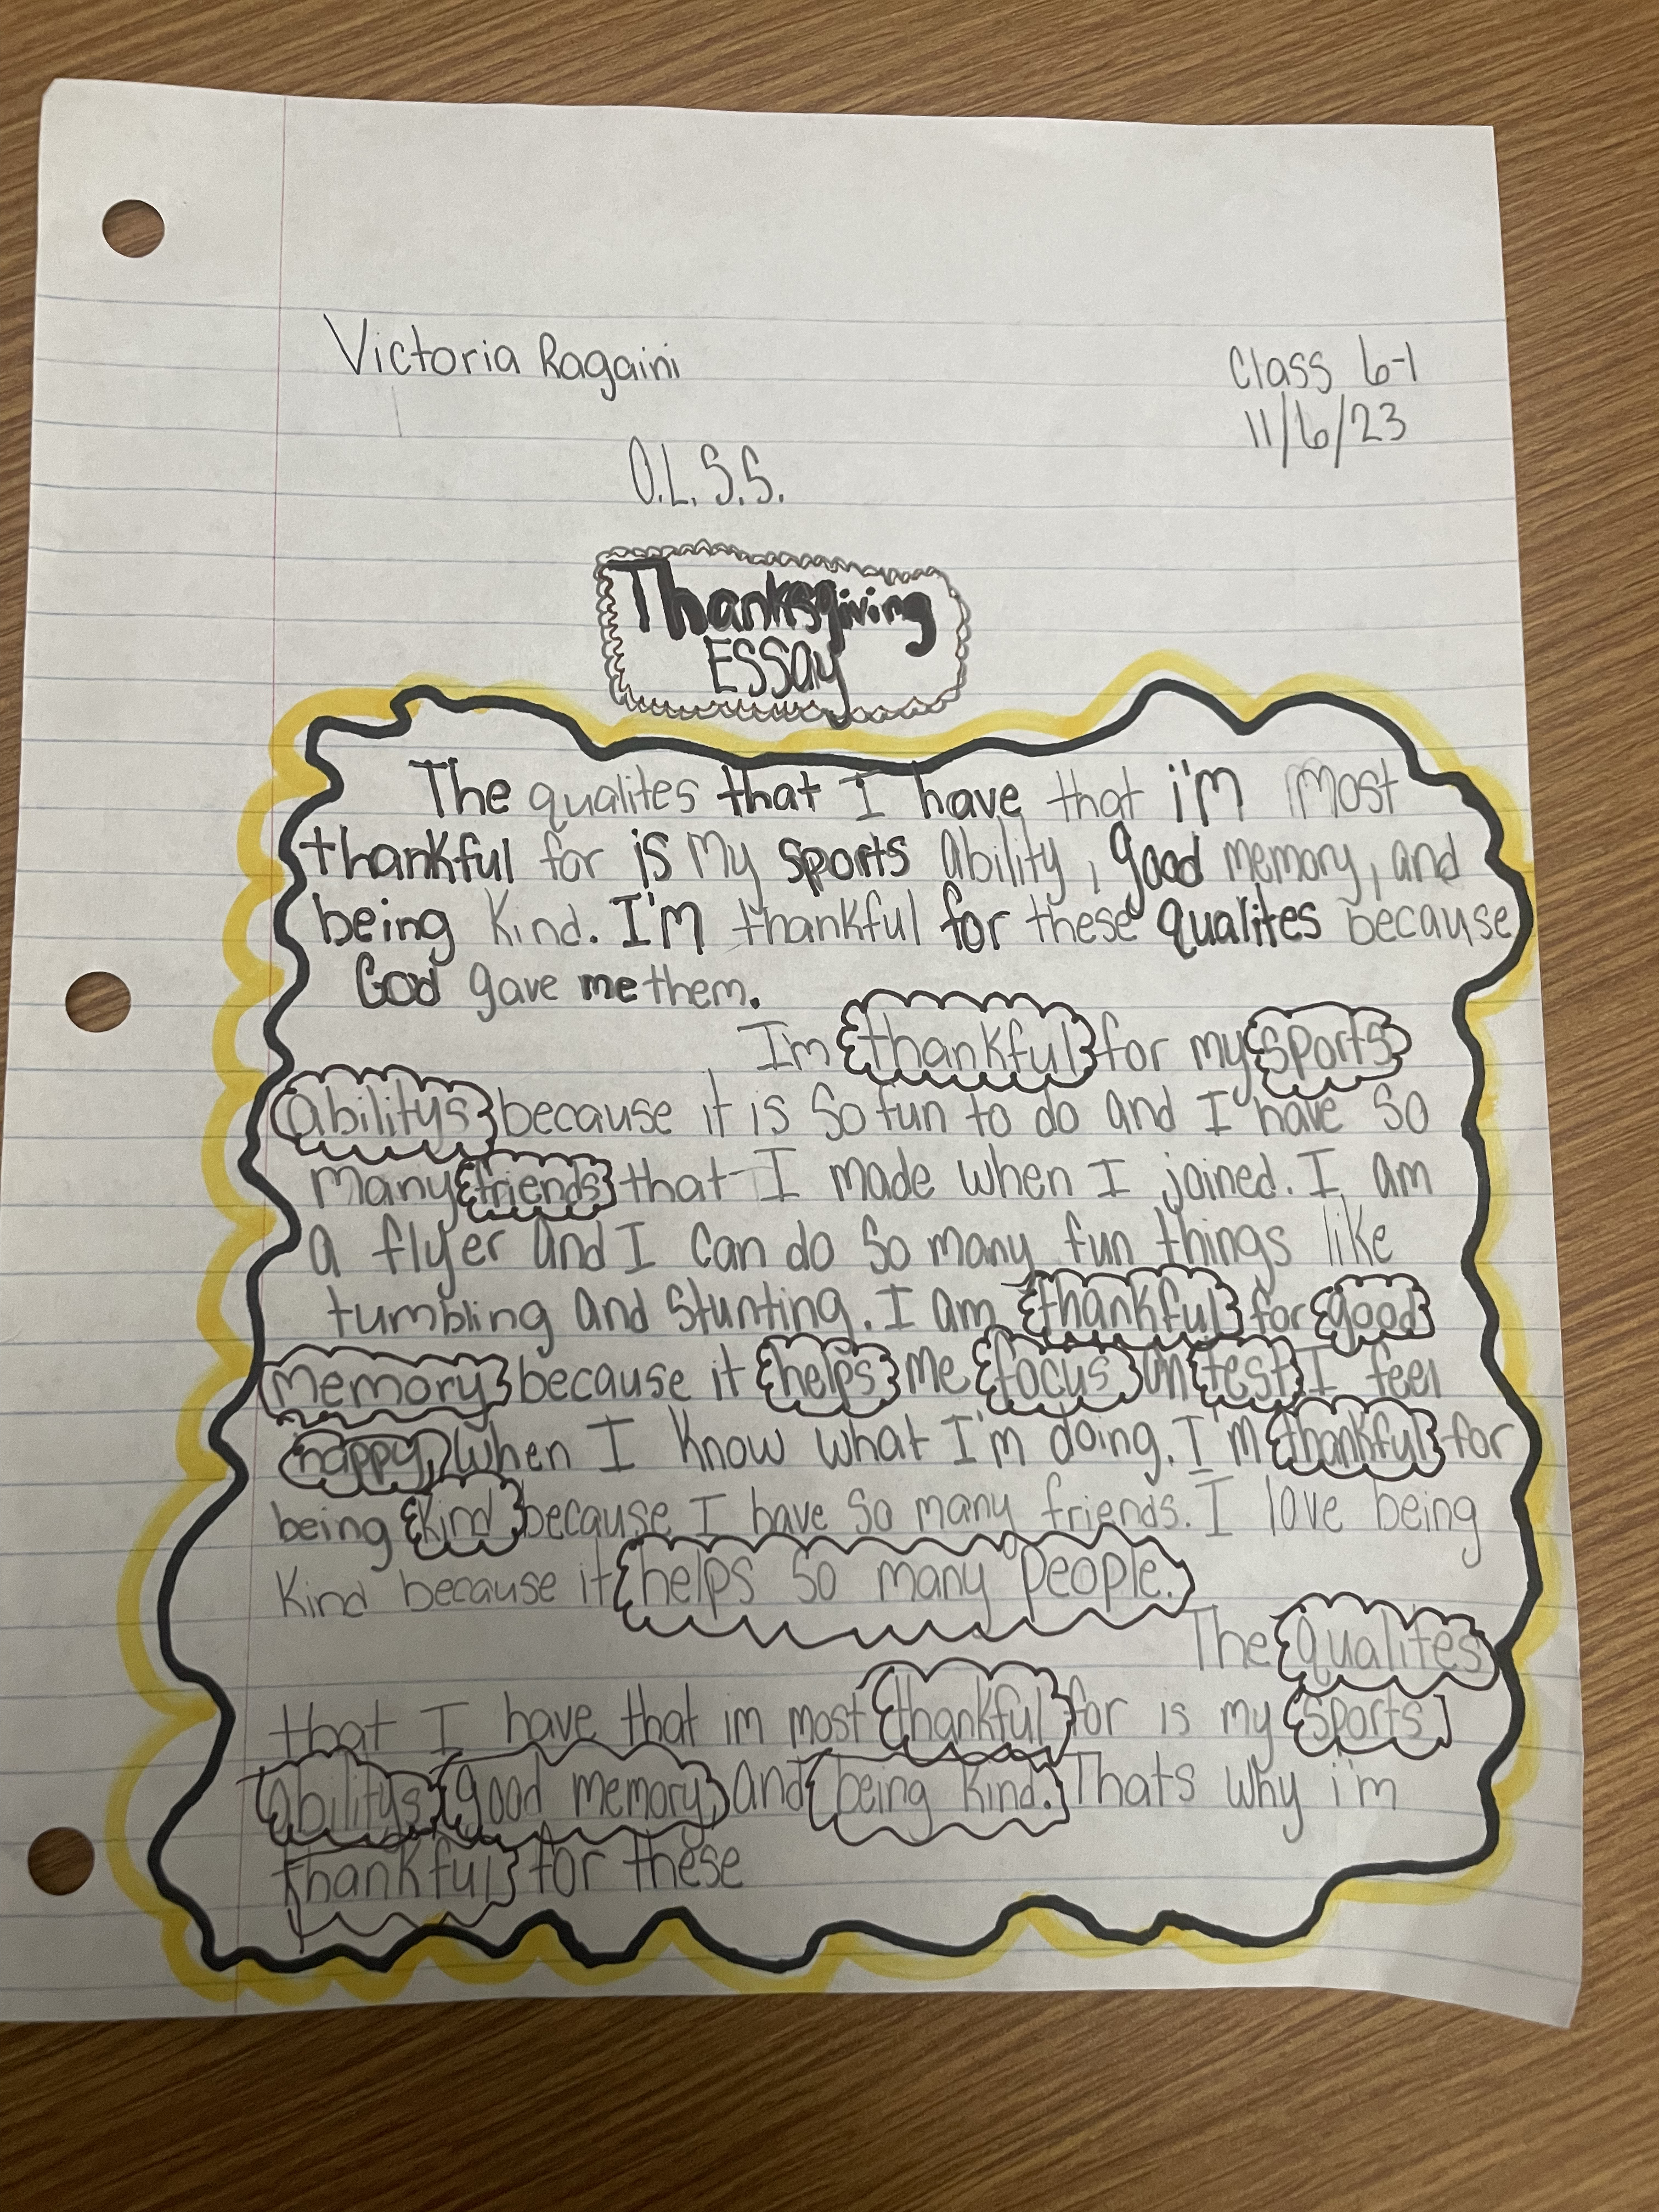 Victoria Ragaini
Class 6-1
11/6/23
O.L.S.S.
Thanksgiving
ESSay
The qualites that I have that i'm most
thankful for is my sports ability, good memory, and
being kind. I'm thankful for these qualites because
God gave me them.
Im thankful for my sports
abilitys because it is so fun to do and I have so
many friends that I made when I joined. I am
a flyer and I can do so many fun things like
tumbling and stunting. I am thankful for good
memory because it helps me focus on test I feel
happy, when I know what I'm doing. I'm thankful for
being kind because I have so many friends. I love being
kind because it helps so many people.
The qualites
that I have that im most thankful for is my sports
abilitys good memory, and being kind. Thats why i'm
thankful for these